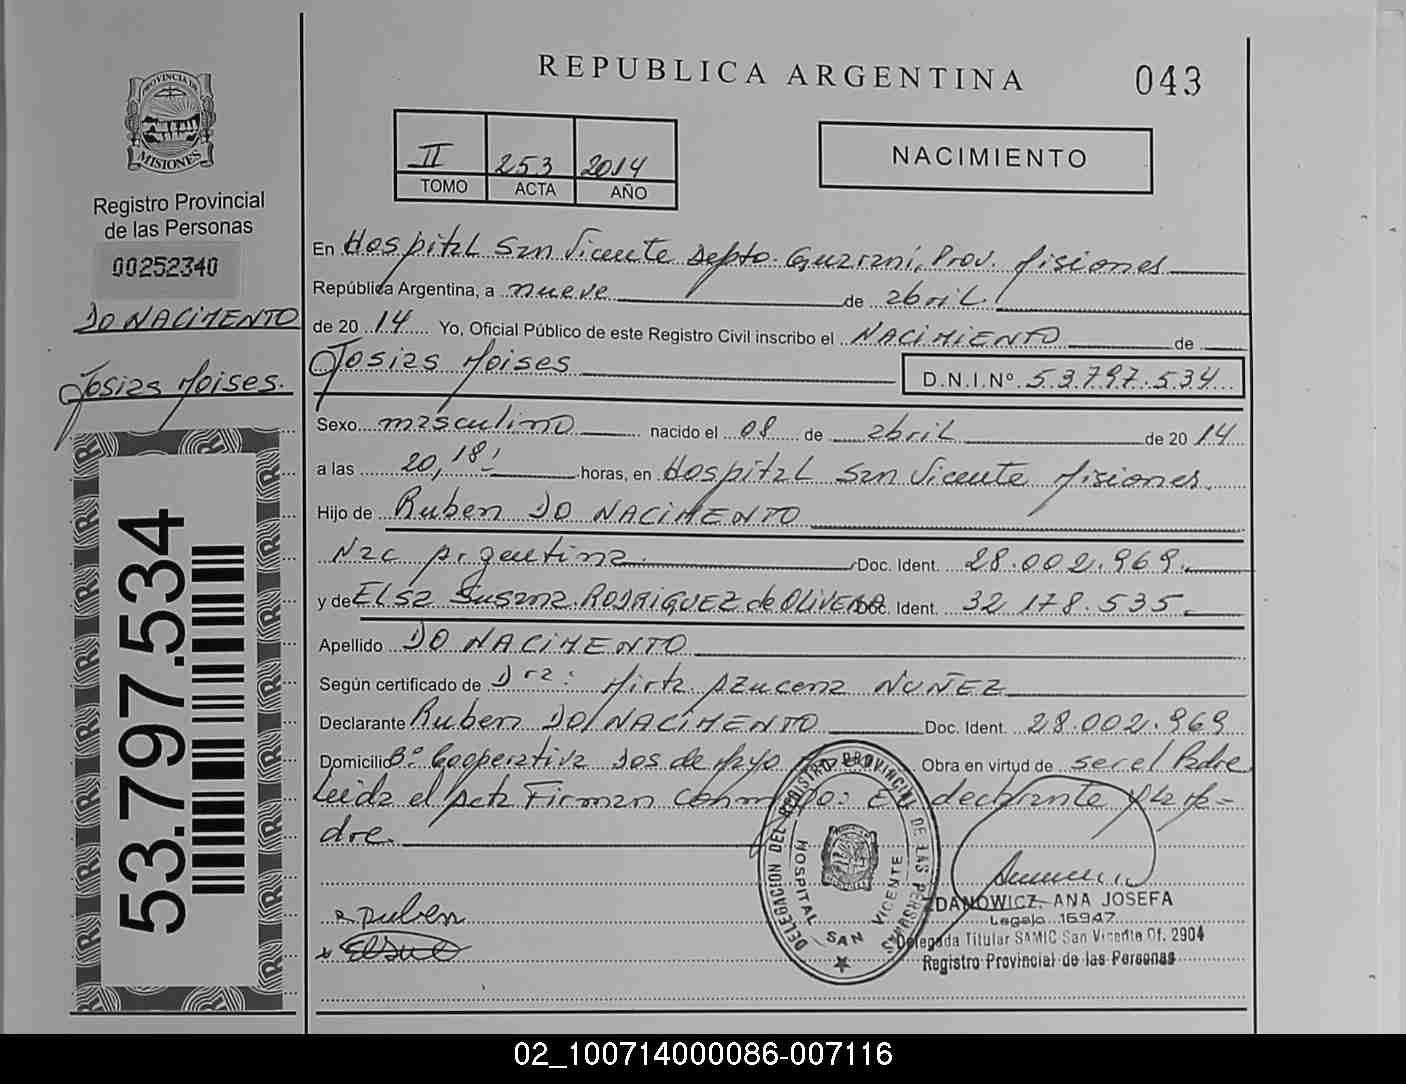 PROVINCIA DE
MISIONES
Registro Provincial
de las Personas
00252340
DO NACIMENTO
Josias Moises.
53.797.534
REPUBLICA ARGENTINA
043
II 253 2014
TOMO ACTA AÑO
NACIMIENTO
En Hospital San Vicente Depto. Guarani, Prov. Misiones
República Argentina, a nueve de abril.
de 20 14 Yo, Oficial Público de este Registro Civil inscribo el NACIMIENTO de
Josias Moises D.N.I.Nº 53.797.534
Sexo masculino nacido el 08 de abril de 20 14
a las 20,18' horas, en Hospital San Vicente Misiones.
Hijo de Ruben DO NACIMENTO
Nac Argentina. Doc. Ident. 28.002.969.
y de Elsa Susana RODRIGUEZ de OLIVERA Doc. Ident. 32 178.535.
Apellido DO NACIMENTO
Según certificado de Dra: Mirta Azucena NUÑEZ
Declarante Ruben DO NACIMENTO Doc. Ident. 28.002.969
Domicilio Bº Cooperativa Dos de Mayo Obra en virtud de ser el Padre
Leida el Acta Firman conmigo: El declarante y la Ma-
dre.
Ruben
DELEGACION DEL REGISTRO PROVINCIAL DE LAS PERSONAS
HOSPITAL SAN VICENTE
ZDANOWICZ, ANA JOSEFA
Legajo 16947
Delegada Titular SAMIC San Vicente Of. 2904
Registro Provincial de las Personas
02_100714000086-007116